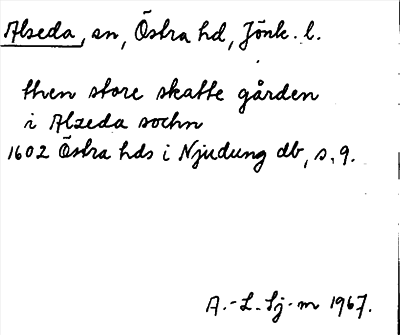 Alseda, sn, Östra hd, Jönk. l.
then store skatte gården
i Alzeda sochn
1602 Östra hds i Njudung db, s. 9.
A.-L. Sj-m 1967.